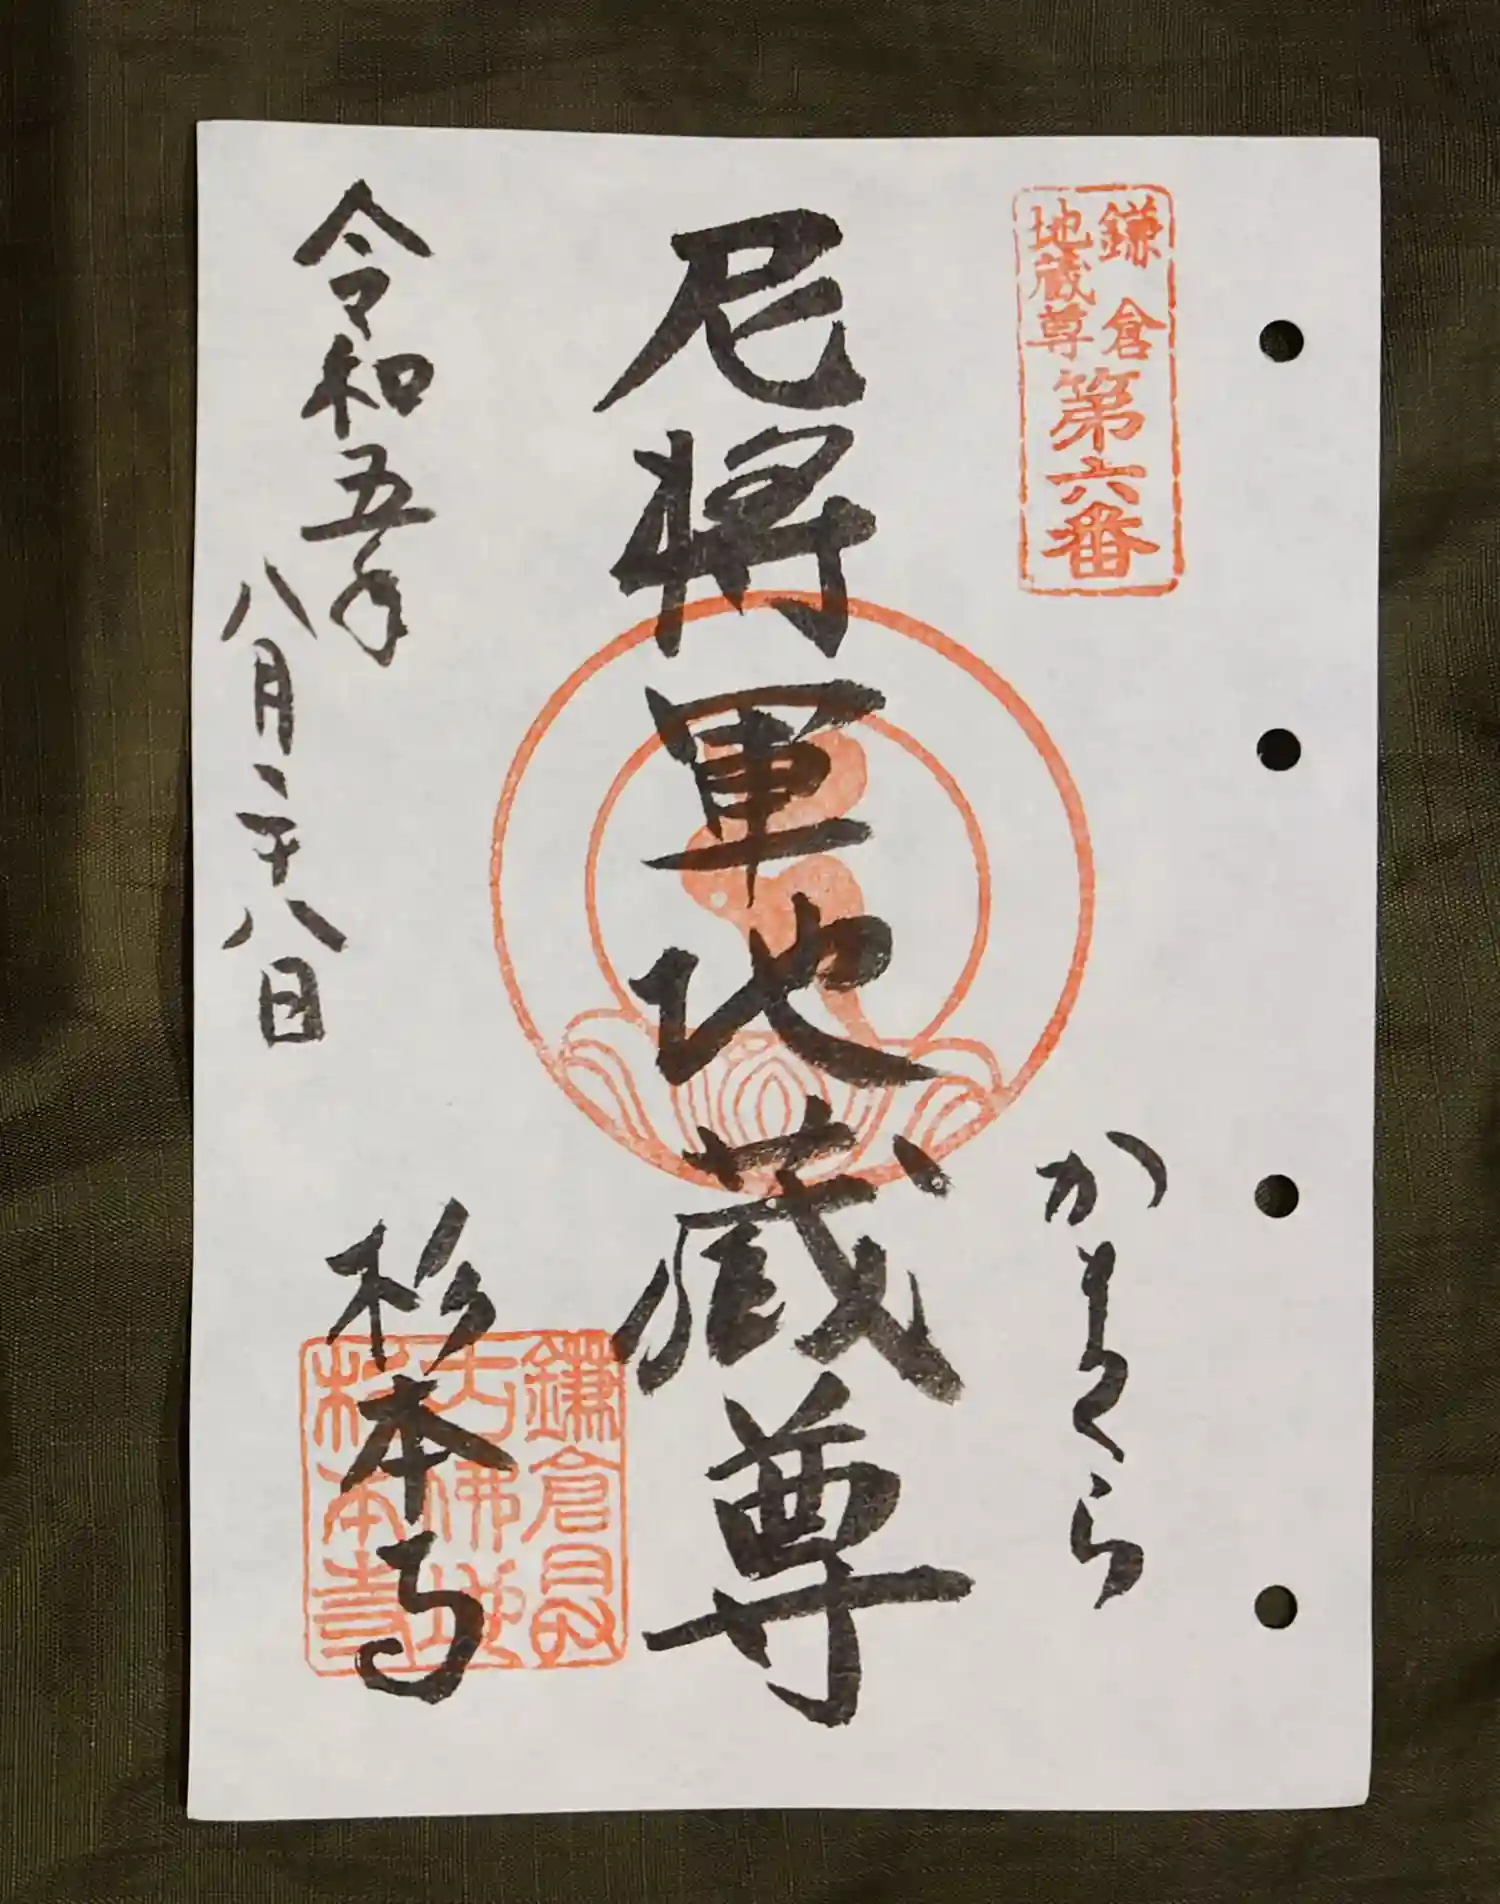 鎌倉
地蔵尊
第六番
かまくら
尼将軍地蔵尊
令和五年
八月二十八日
杉本寺
鎌倉最
古佛地
杉本寺